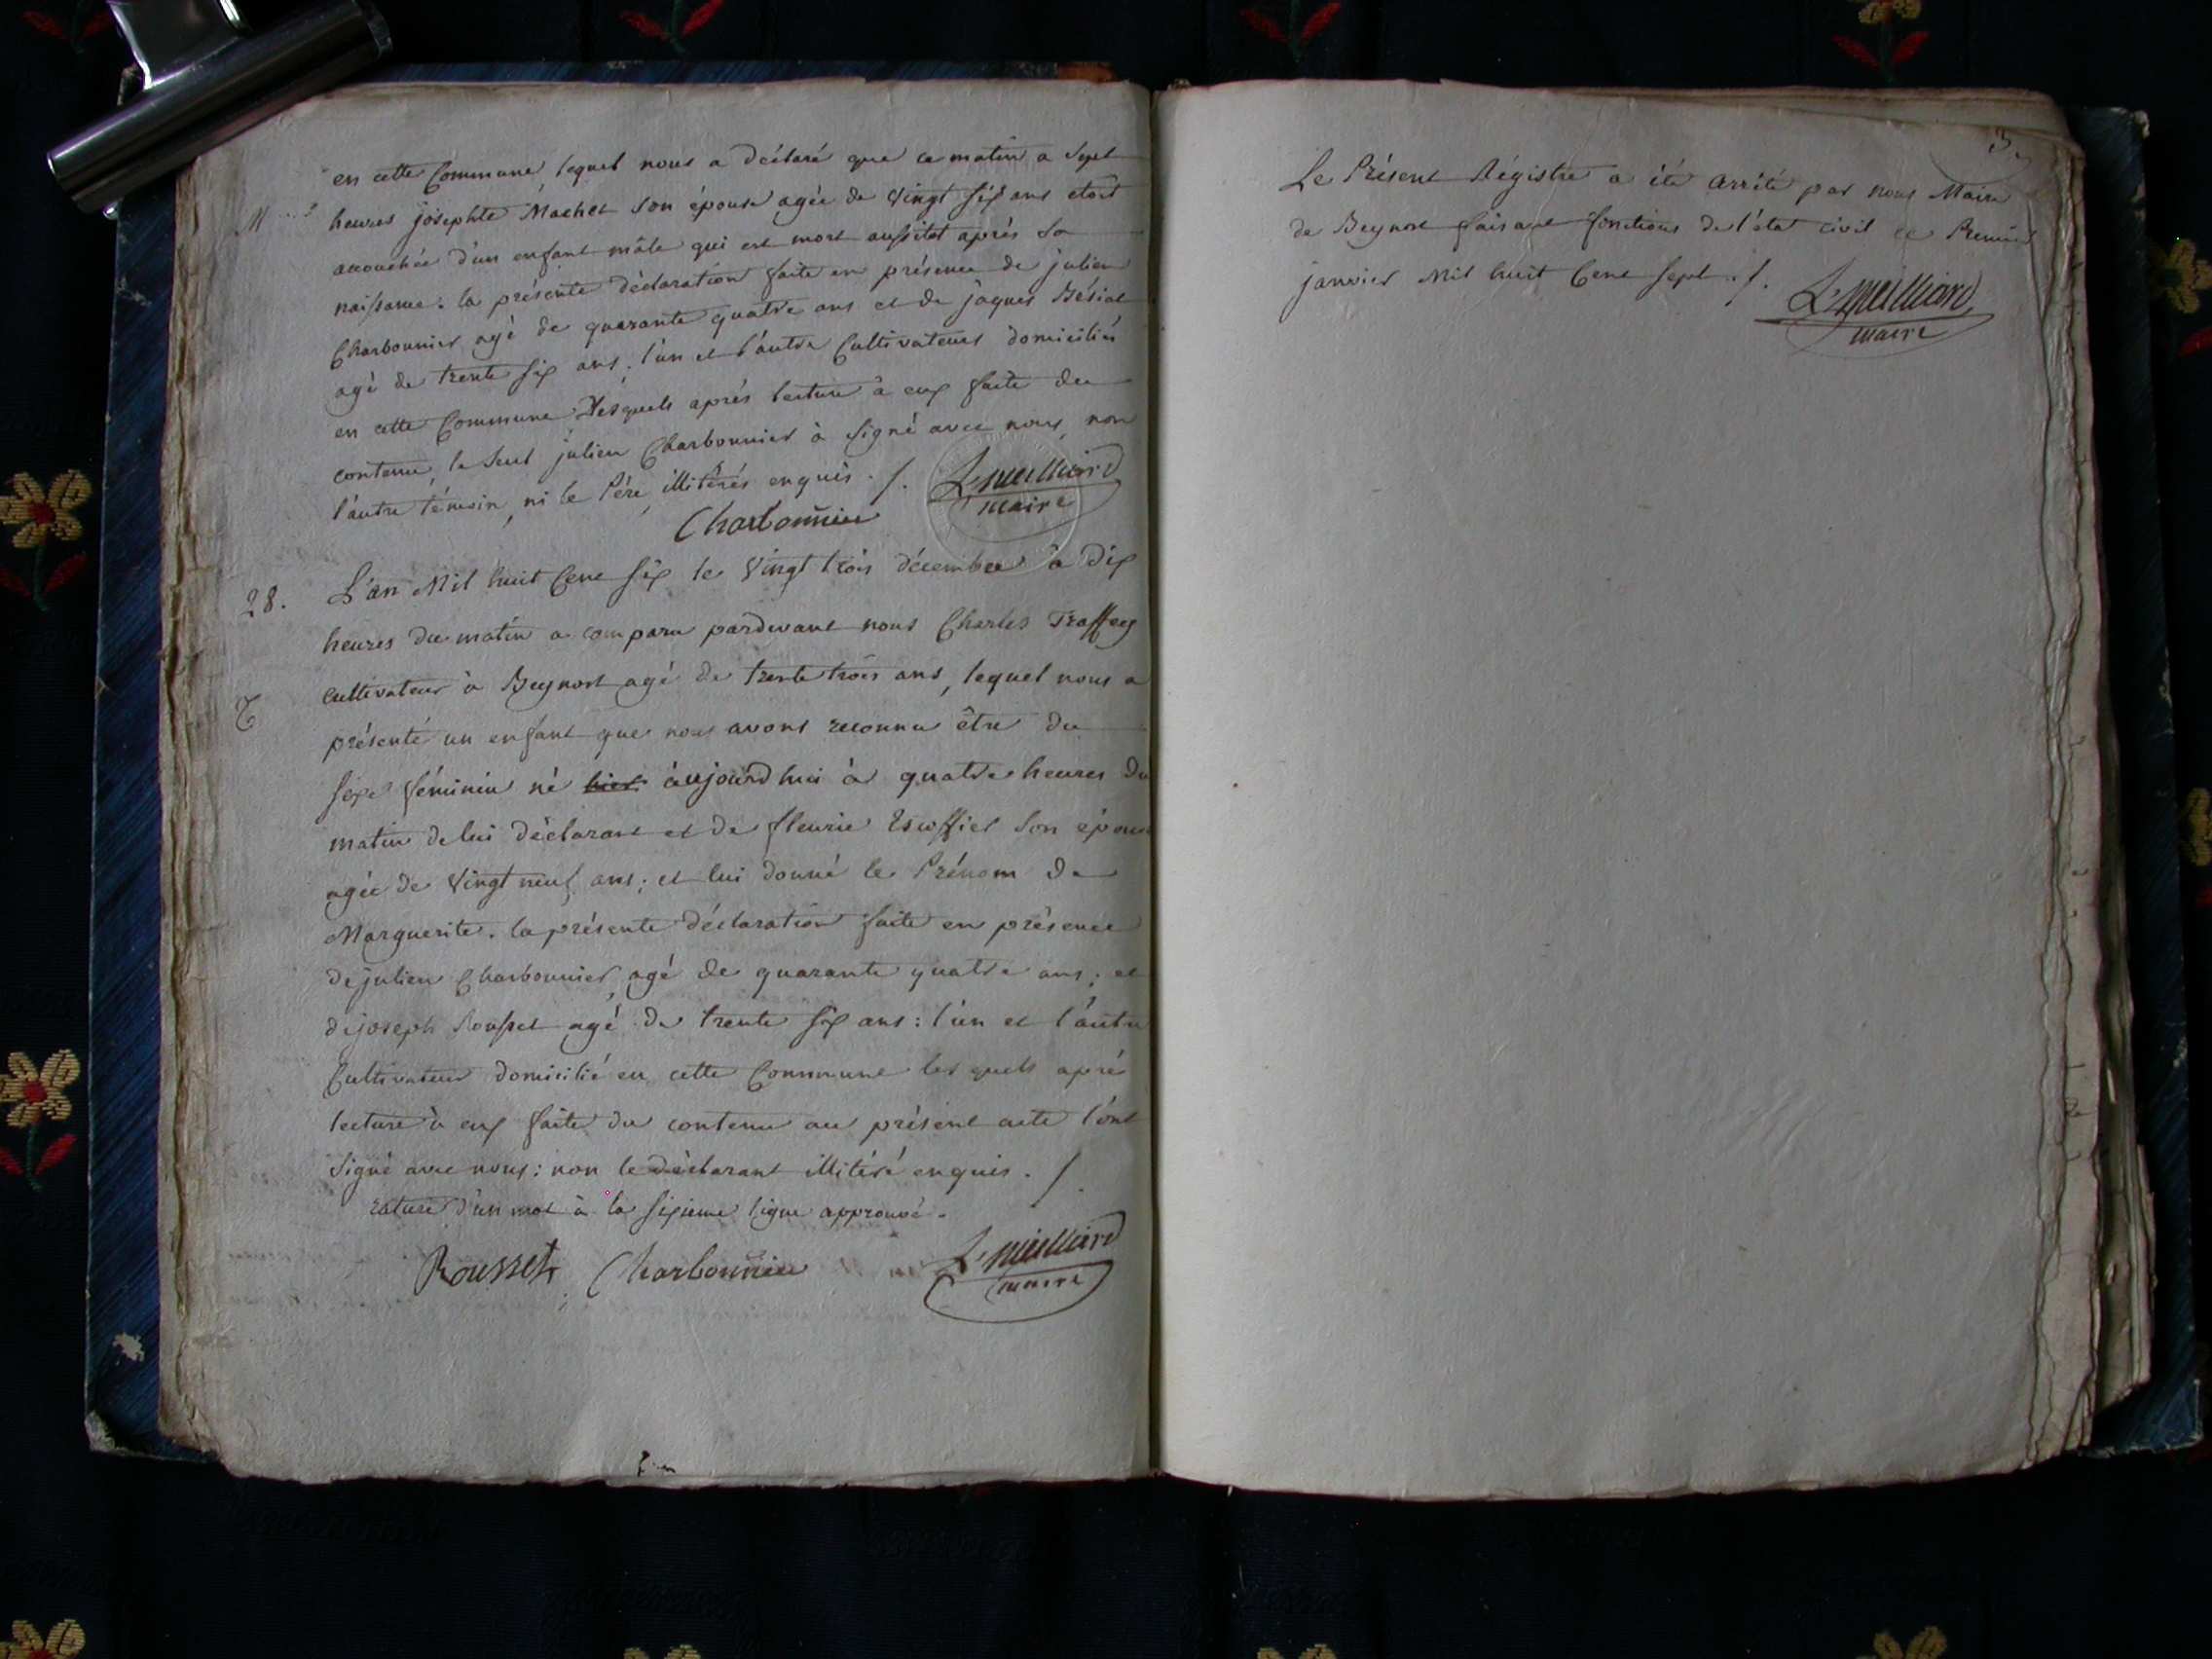 en cette Commune, lequel nous a déclaré que ce matin a Sept
M
heures josephte Machet son épouse agée de vingt six ans etoit
accouchée d'un enfant mâle qui est mort aussitot aprés sa
naissance: la présente déclaration faite en présence de julien
Charbonnier agé de quarante quatre ans et de jaques
agé de trente six ans; l'un et l'autre Cultivateurs domiciliés
en cette Commune Lesquels aprés lecture à eux faite du
contenu, le seul julien Charbonnier à signé avec nous, non
l'autre témoin, ni le Pére, illitérés enquis ./.
Charbonnier
maire
28.
L'an Mil huit Cent six le vingt trois décembre à dix
heures du matin a comparu pardevant nous Charles Traffey
cultivateur à Beynost agé de trente trois ans, lequel nous a
présenté un enfant que nous avons reconnu être du
sexe féminin né hier aujourd'hui à quatre heures du
matin de lui déclarant et de fleurie Escoffier son épouse
agée de vingt neuf ans; et lui donné le Prénom de
Marguerite. la présente déclaration faite en présence
de julien Charbonnier, agé de quarante quatre ans; et
de joseph Rousset agé de trente six ans: l'un et l'autre
Cultivateur domicilié en cette Commune les quels aprés
lecture à eux faite du contenu au présent acte l'ont
signé avec nous: non le déclarant illitéré enquis ./.
rature d'un mot à la sixieme ligne approuvé.
Rousset Charbonnier
maire
Le Présent Régistre a été arrêté par nous Maire
de Beynost faisant fonctions de l'état civil ce Premier
janvier Mil huit Cent sept ./.
maire